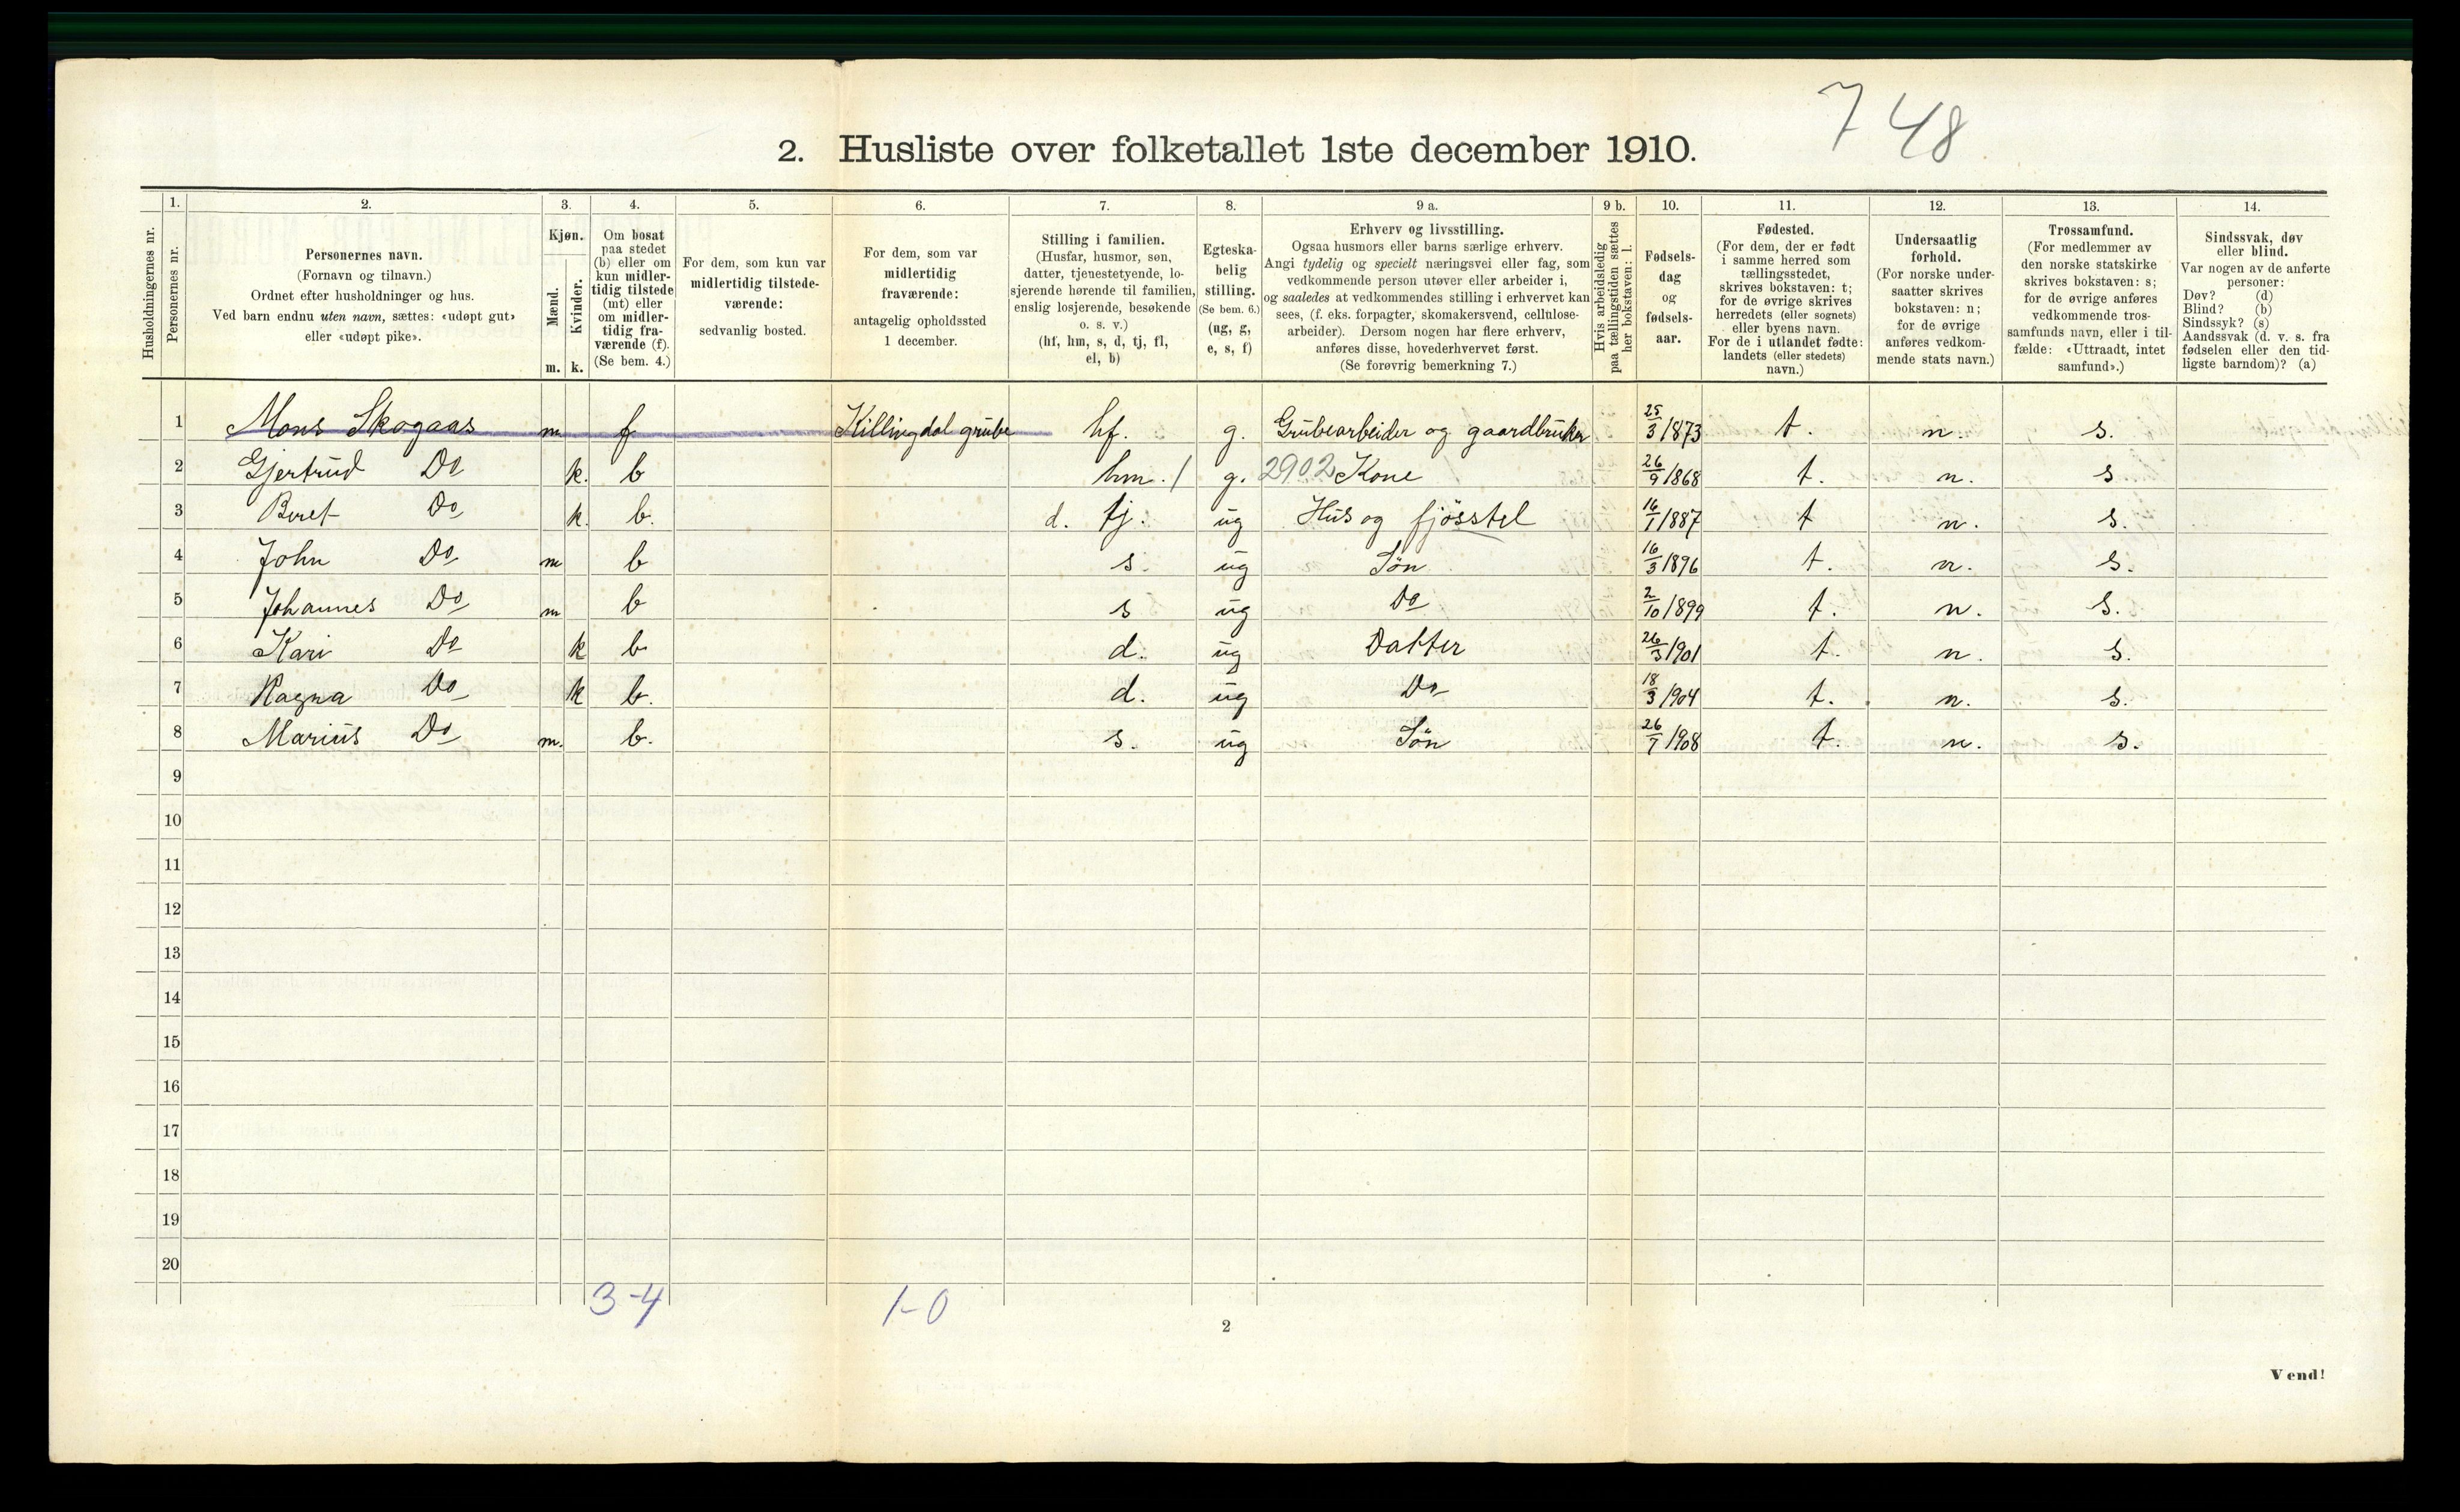 7 48
2. Husliste over folketallet 1ste december 1910.
Husholdningernes nr.
1. Personernes nr.
2. Personernes navn.
(Fornavn og tilnavn.)
Ordnet efter husholdninger og hus.
Ved barn endnu uten navn, sættes: «udøpt gut»
eller «udøpt pike».
3. Kjøn.
Mænd. m.
Kvinder. k.
4. Om bosat
paa stedet
(b) eller om
kun midler-
tidig tilstede
(mt) eller
om midler-
tidig fra-
værende (f).
(Se bem. 4.)
5. For dem, som kun var
midlertidig tilstede-
værende:
sedvanlig bosted.
6. For dem, som var
midlertidig
fraværende:
antagelig opholdssted
1 december.
7. Stilling i familien.
(Husfar, husmor, søn,
datter, tjenestetyende, lo-
sjerende hørende til familien,
enslig losjerende, besøkende
o. s. v.)
(hf, hm, s, d, tj, fl,
el, b)
8. Egteska-
belig
stilling.
(Se bem. 6.)
(ug, g,
e, s, f)
9 a. Erhverv og livsstilling.
Ogsaa husmors eller barns særlige erhverv.
Angi tydelig og specielt næringsvei eller fag, som
vedkommende person utøver eller arbeider i,
og saaledes at vedkommendes stilling i erhvervet kan
sees, (f. eks. forpagter, skomakersvend, cellulose-
arbeider). Dersom nogen har flere erhverv,
anføres disse, hovederhvervet først.
(Se forøvrig bemerkning 7.)
9 b. Hvis arbeidsledig
paa tællingstiden sættes
her bokstaven: l.
10. Fødsels-
dag
og
fødsels-
aar.
11. Fødested.
(For dem, der er født
i samme herred som
tællingsstedet,
skrives bokstaven: t;
for de øvrige skrives
herredets (eller sognets)
eller byens navn.
For de i utlandet fødte:
landets (eller stedets)
navn.)
12. Undersaatlig
forhold.
(For norske under-
saatter skrives
bokstaven: n;
for de øvrige
anføres vedkom-
mende stats navn.)
13. Trossamfund.
(For medlemmer av
den norske statskirke
skrives bokstaven: s;
for de øvrige anføres
vedkommende tros-
samfunds navn, eller i til-
fælde: «Uttraadt, intet
samfund».)
14. Sindssvak, døv
eller blind.
Var nogen av de anførte
personer:
Døv? (d)
Blind? (b)
Sindssyk? (s)
Aandssvak (d. v. s. fra
fødselen eller den tid-
ligste barndom)? (a)
1 Mons Skogaas m f Killingdal grube hf. g. Grubearbeider og gaardbruker 25/3 1873 t. n. s.
2 Gjertrud Do k. b hm. / g. 2902 Kone 26/9 1868 t. n. s
3 Beret Do k. b. d. tj. ug Hus og fjösstel 16/1 1887 t n. s.
4 John Do m b s. ug Sön 16/3 1896 t. n. s.
5 Johannes Do m b s ug Do 2/10 1899 t. n. s.
6 Kari Do k b d. ug Datter 26/3 1901 t. n. s.
7 Ragna Do k b. d. ug Do 18/3 1904 t. n. s.
8 Marius Do m. b. s. ug Sön 26/7 1908 t. n. s.
9
10
11
12
13
14
15
16
17
18
19
20
3-4 1-0
2
Vend!